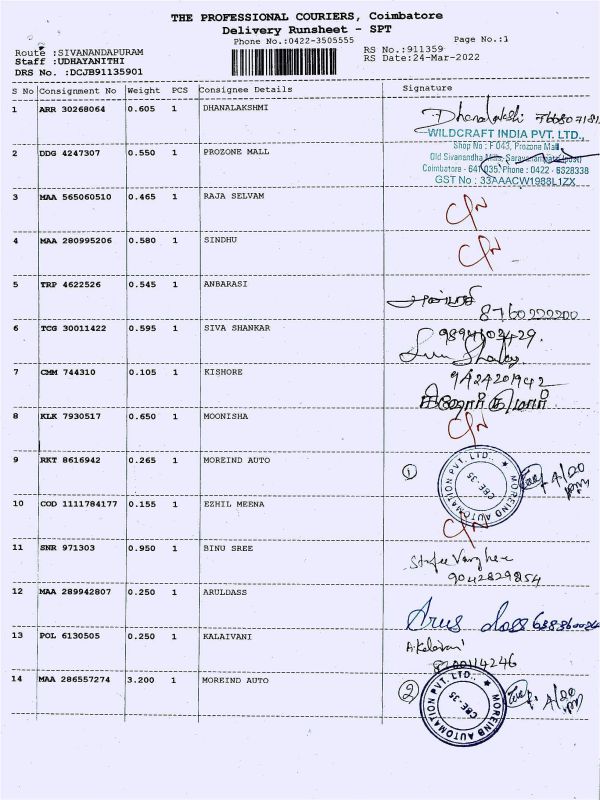 THE PROFESSIONAL COURIERS, Coimbatore
Delivery Runsheet - SPT
Phone No.:0422-3505555
Page No.:1
Route :SIVANANDAPURAM
RS No.:911359
Staff :UDHAYANITHI
RS Date:24-Mar-2022
DRS No. :DCJB91135901
S No Consignment No Weight PCS Consignee Details Signature
1 ARR 30268064 0.605 1 DHANALAKSHMI
WILDCRAFT INDIA PVT. LTD.,
Shop No : F 043, Prozone Mall
2 DDG 4247307 0.550 1 PROZONE MALL
Old Sivanandha Mills,
Coimbatore - 641 035. Phone : 0422 - 6328338
GST No : 33AAACW1988L1ZX
3 MAA 565060510 0.465 1 RAJA SELVAM
4 MAA 280995206 0.580 1 SINDHU
5 TRP 4622526 0.545 1 ANBARASI
8760222200
6 TCG 30011422 0.595 1 SIVA SHANKAR
7 CMM 744310 0.105 1 KISHORE
9424201942
8 KLK 7930517 0.650 1 MOONISHA
9 RKT 8616942 0.265 1 MOREIND AUTO
1
MOREIND AUTOMATION PVT. LTD.
CBE-35
10 COD 1111784177 0.155 1 EZHIL MEENA
11 SNR 971303 0.950 1 BINU SREE
9042829854
12 MAA 289942807 0.250 1 ARULDASS
13 POL 6130505 0.250 1 KALAIVANI
A.Kalaivani
14 MAA 286557274 3.200 1 MOREIND AUTO
2
MOREIND AUTOMATION PVT. LTD.
CBE-35